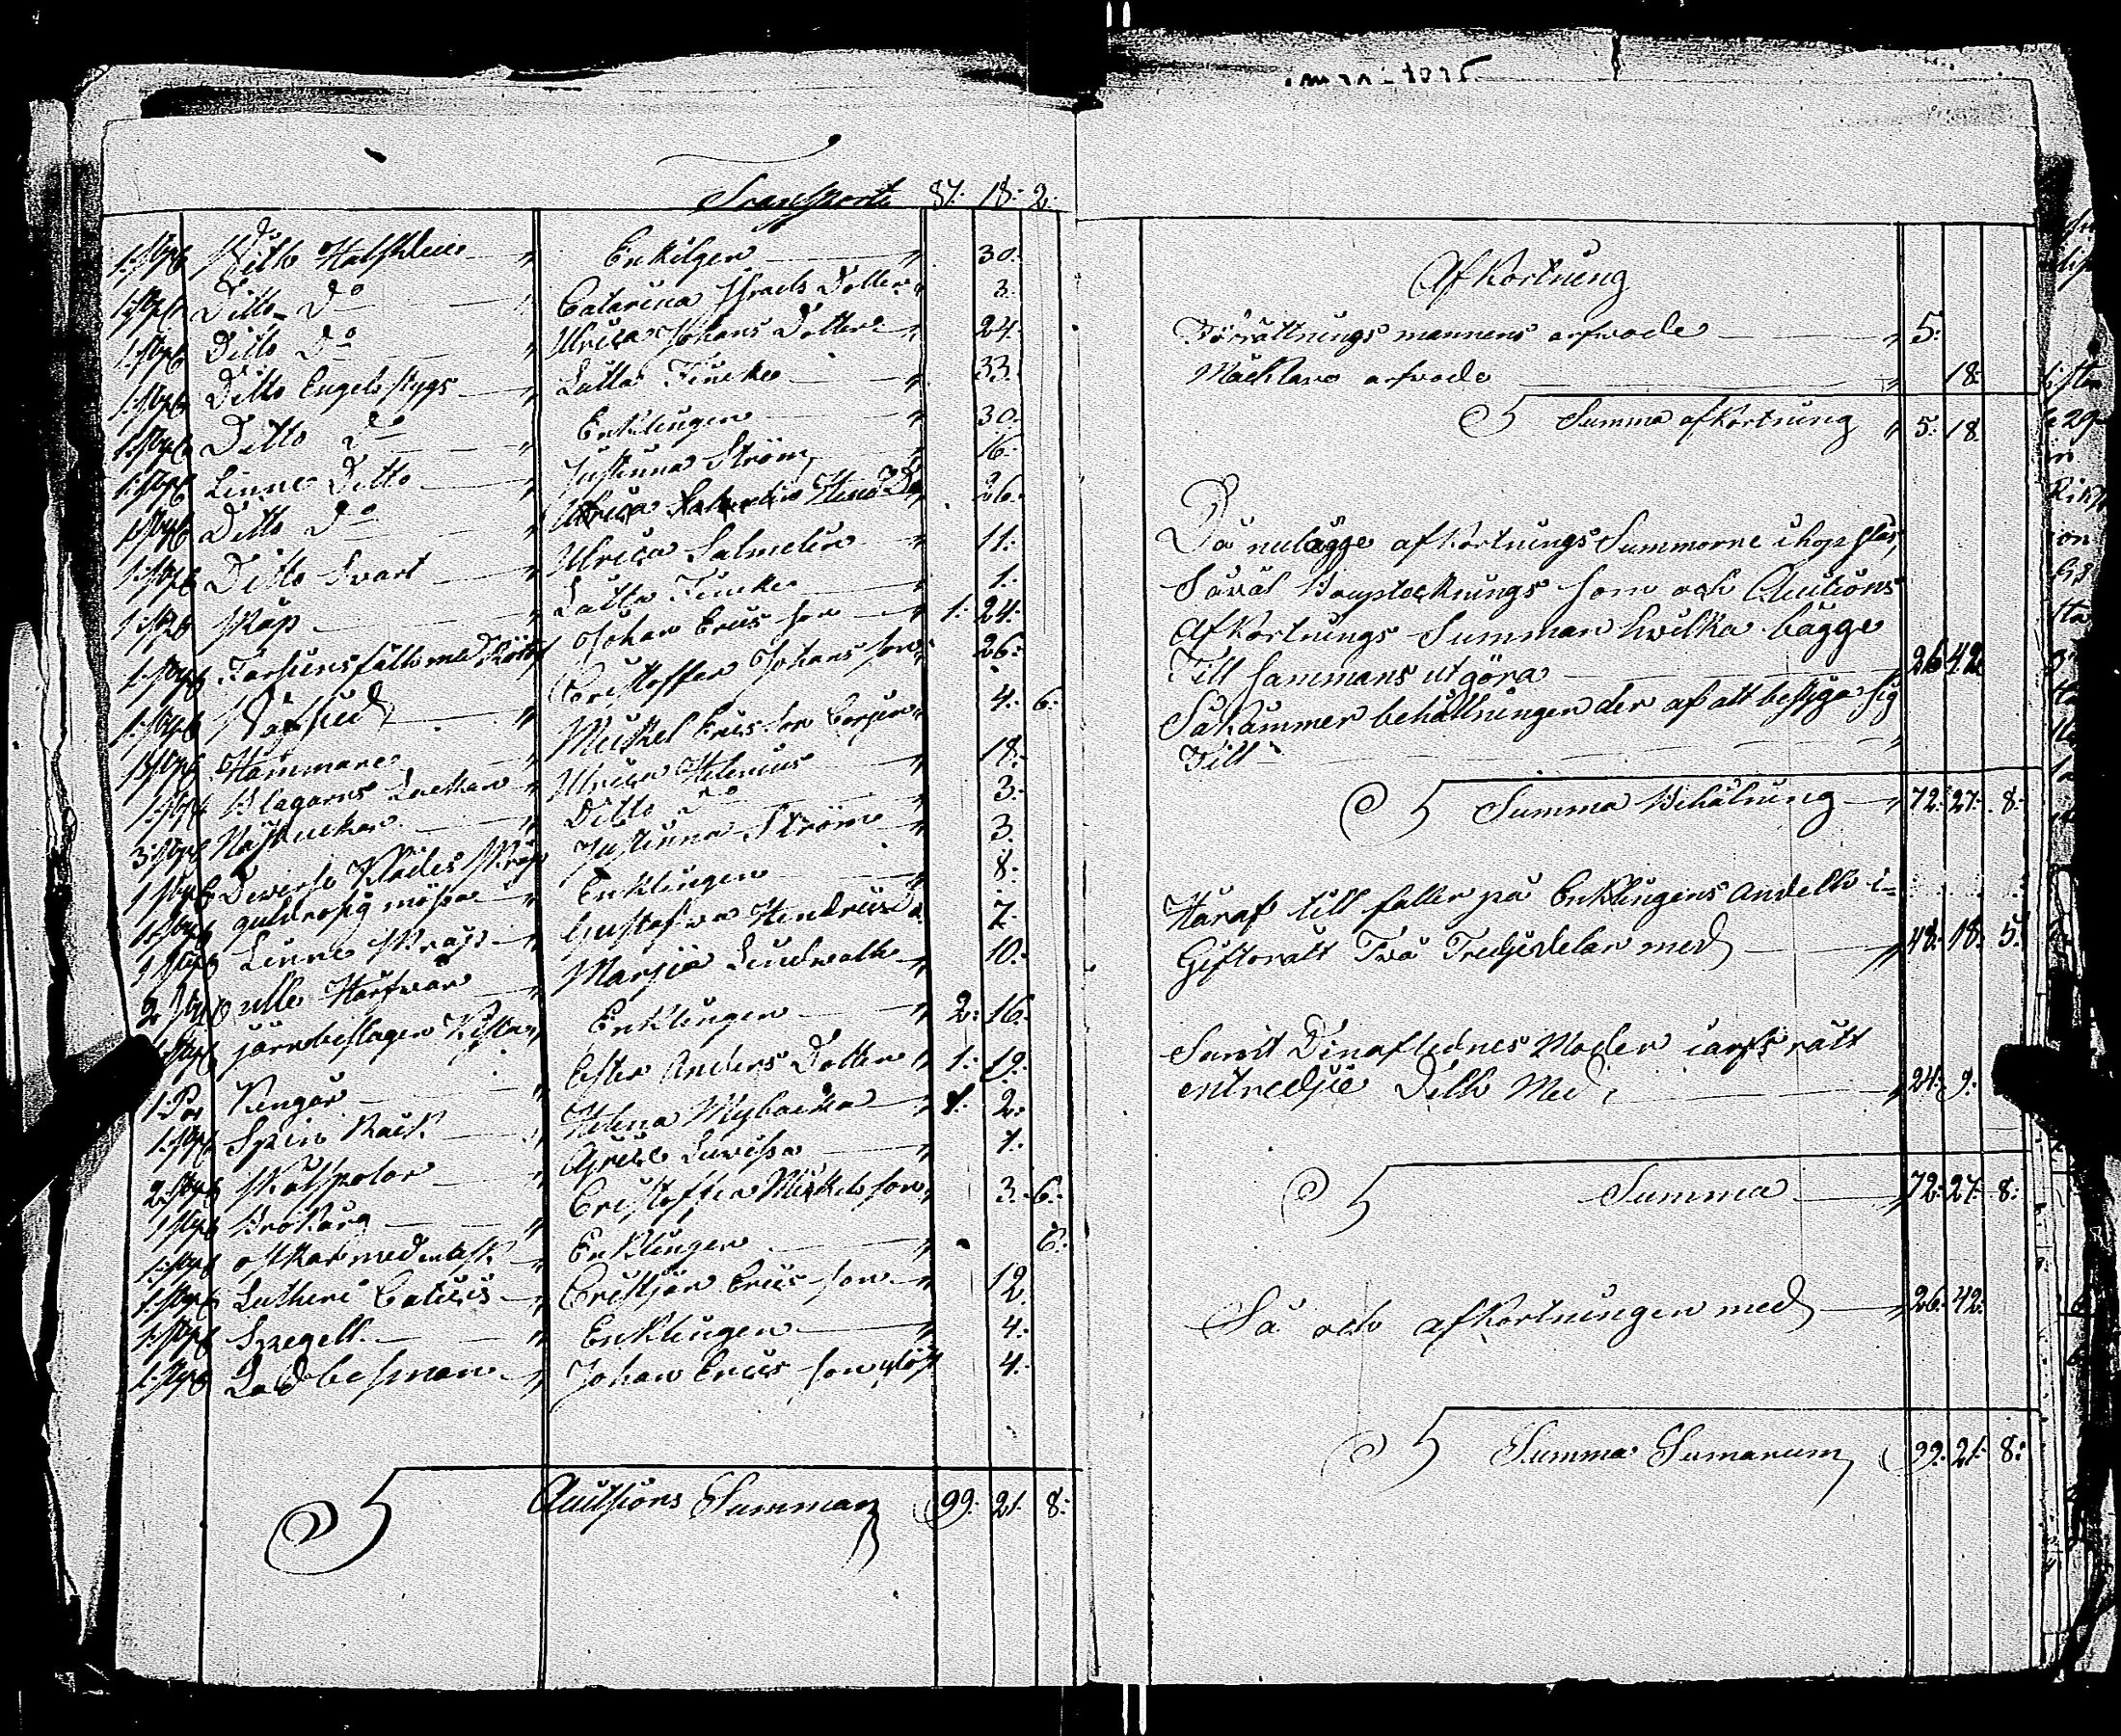 Transport 87: 18: 2:
1: styck Ditto Halskläde Enkilgen 30:
1: styck Ditto Do Catarina Israels Dotter 3:
1: styck Ditto Do Ulrica Johans Dotter 24:
1: styck Ditto Engelstygs Latta Fincke 33:
1: styck Ditto Do Enklingen 30:
1: styck Linne Ditto Justinna Ström 16:
1: styck Ditto Do Ulrica 26:
1: styck Ditto Svart Ulrica Salmelin 11:
1: Skåp Latta Fincke 1:
1: styck med Johan Erics son 1: 24:
1: styck Väfsked Cristoffer Johans son 26:
1: styck Hammare Mickel Erics son 4: 6:
1: styck Blagarns Lackan Ulrica Helenius 18:
3: styck Näsduckar Ditto Do 3:
1 styck Diverse Klädes Skräp Justinna Ström 3:
1: styck guldrosig mössa Enklingen 8:
1 styck Linne Skräp Gustafva Hendrics D. 7:
2 styck ulle Härfvar Marjia Lindvall 10:
1: styck järnbeslagen Kista Enklingen 2: 16:
1: Par Kängor Ester Anders Dotter 1: 19:
1: styck Spin Råck Helena Nybacka 1: 2:
2: styck Lovisa 1:
1 styck Brokorg Cristoffer Mickels son 3: 6:
1: styck askar med Enklingen 6:
1: styck Lutheri Caticis Cristjan Erics son 12
1: styck Spegell Enklingen 4:
1: styck Ladbesman Johan Erics son 4:
Auctsions Summan 99: 21: 8:
Afkortning
Förrättnings mannens arfvode 5:
Mäcklare arfvode 18:
Summa afkortning 5: 18
Då nu bägge afkortnings Summorne ihop slås,
Såväl Bouptecknings som och Auctions
Afkortnings Summan hvilka bägge
Till sammans utgöra 26: 42
Så kammer behållningen der af att bestiga sig
Till
Summa Behålning 72: 27: 8:
Häraf till faller på Enklingens Andell i
Giftorätt Två Tredjedelar med 48: 18: 5:
Samt Den aflednes Moder i arfs rätt
en tredjie Dell Med 24: 9:
Summa 72: 27: 8:
Så och afkortningen med 26: 42
Summa Sumarum 99: 21: 8: